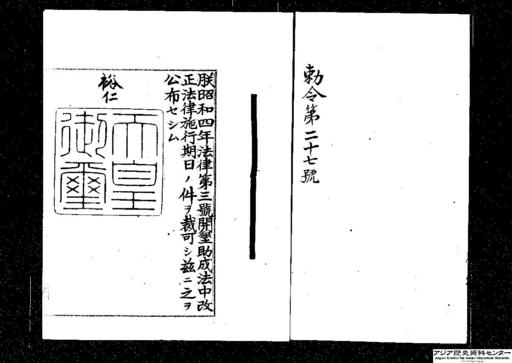 勅令第二十七號
朕昭和四年法律第三號開墾助成法中改
正法律施行期日ノ件ヲ裁可シ茲ニ之ヲ
公布セシム
裕仁
天皇
御璽
アジア歴史資料センター
Japan Center for Asian Historical Records